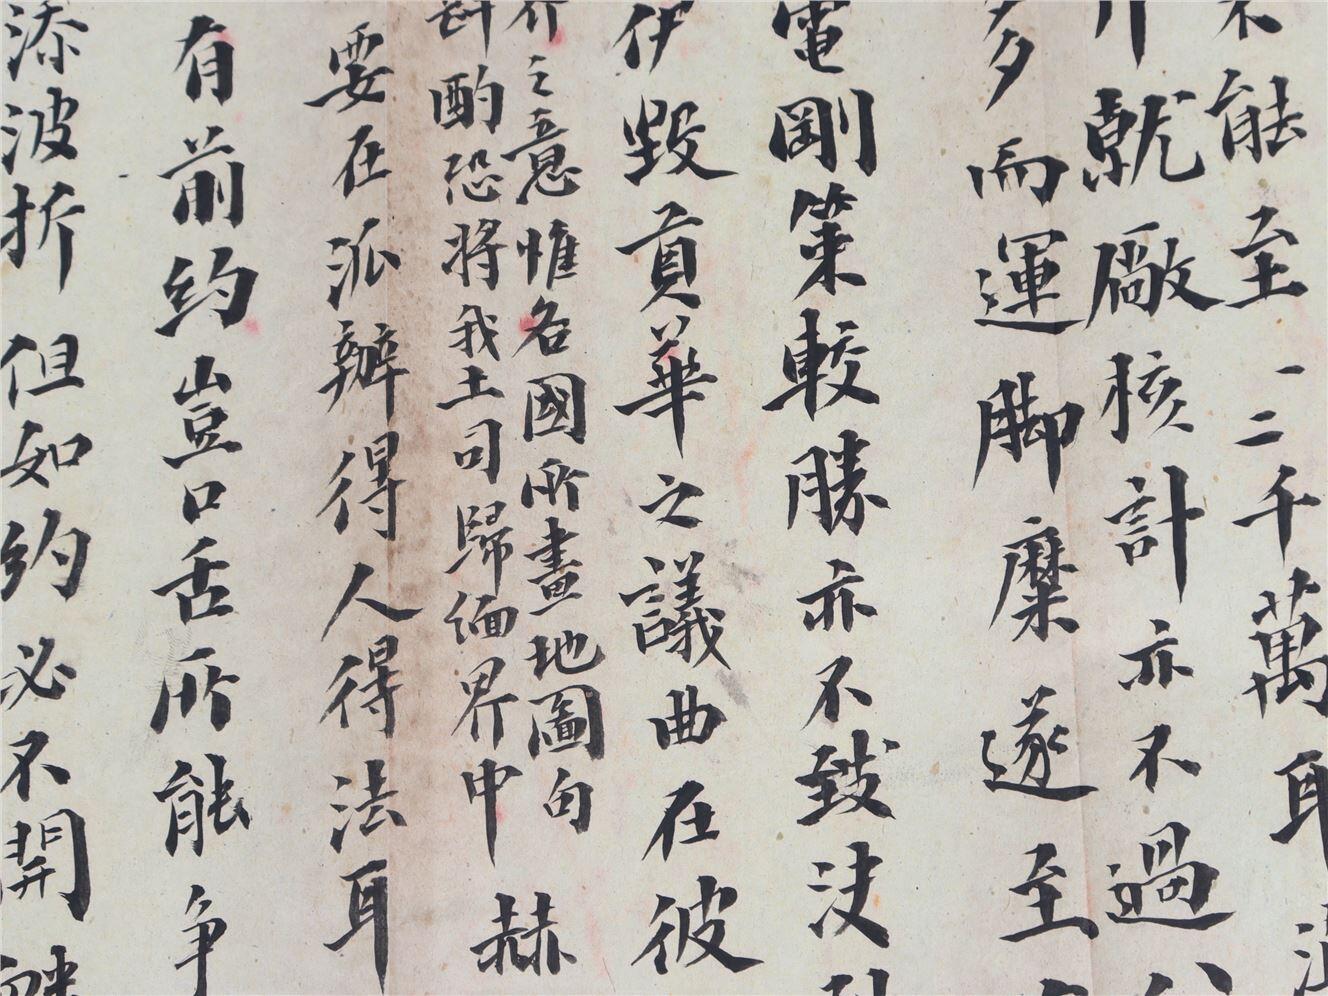 不能至一二千萬耶
斤就廠核計亦不過
多而運脚糜遂至
電剛策較勝亦不致决
伊毀貢華之議曲在彼
介之意惟各國所畫地圖句
斟酌恐將我土司歸緬界中 赫
要在派辦得人得法耳
有前約豈口舌所能争
添波折但如約必不開